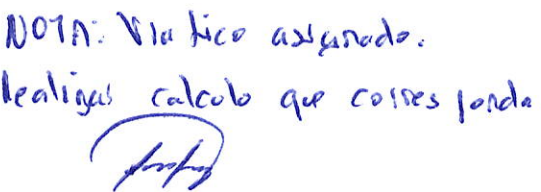 NOTA: Viatico asignado.
Realizar calculo que corresponda